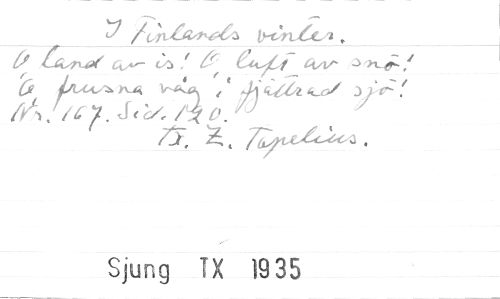 I Finlands vinter.
O land av is! O, luft av snö!
O frusna våg i fjättrad sjö!
Nr. 167. Sid. 120.
Tx. Z. Topelius.
Sjung TX 1935